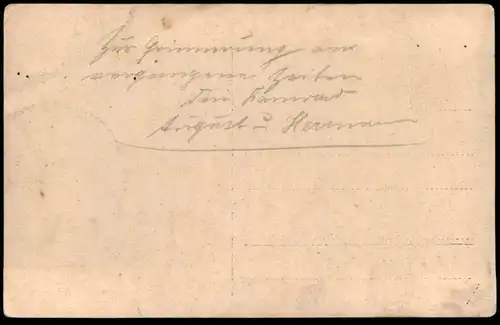 Zur Erinnerung an
vergangene Zeiten
Dein Kamrad
August u Hermann